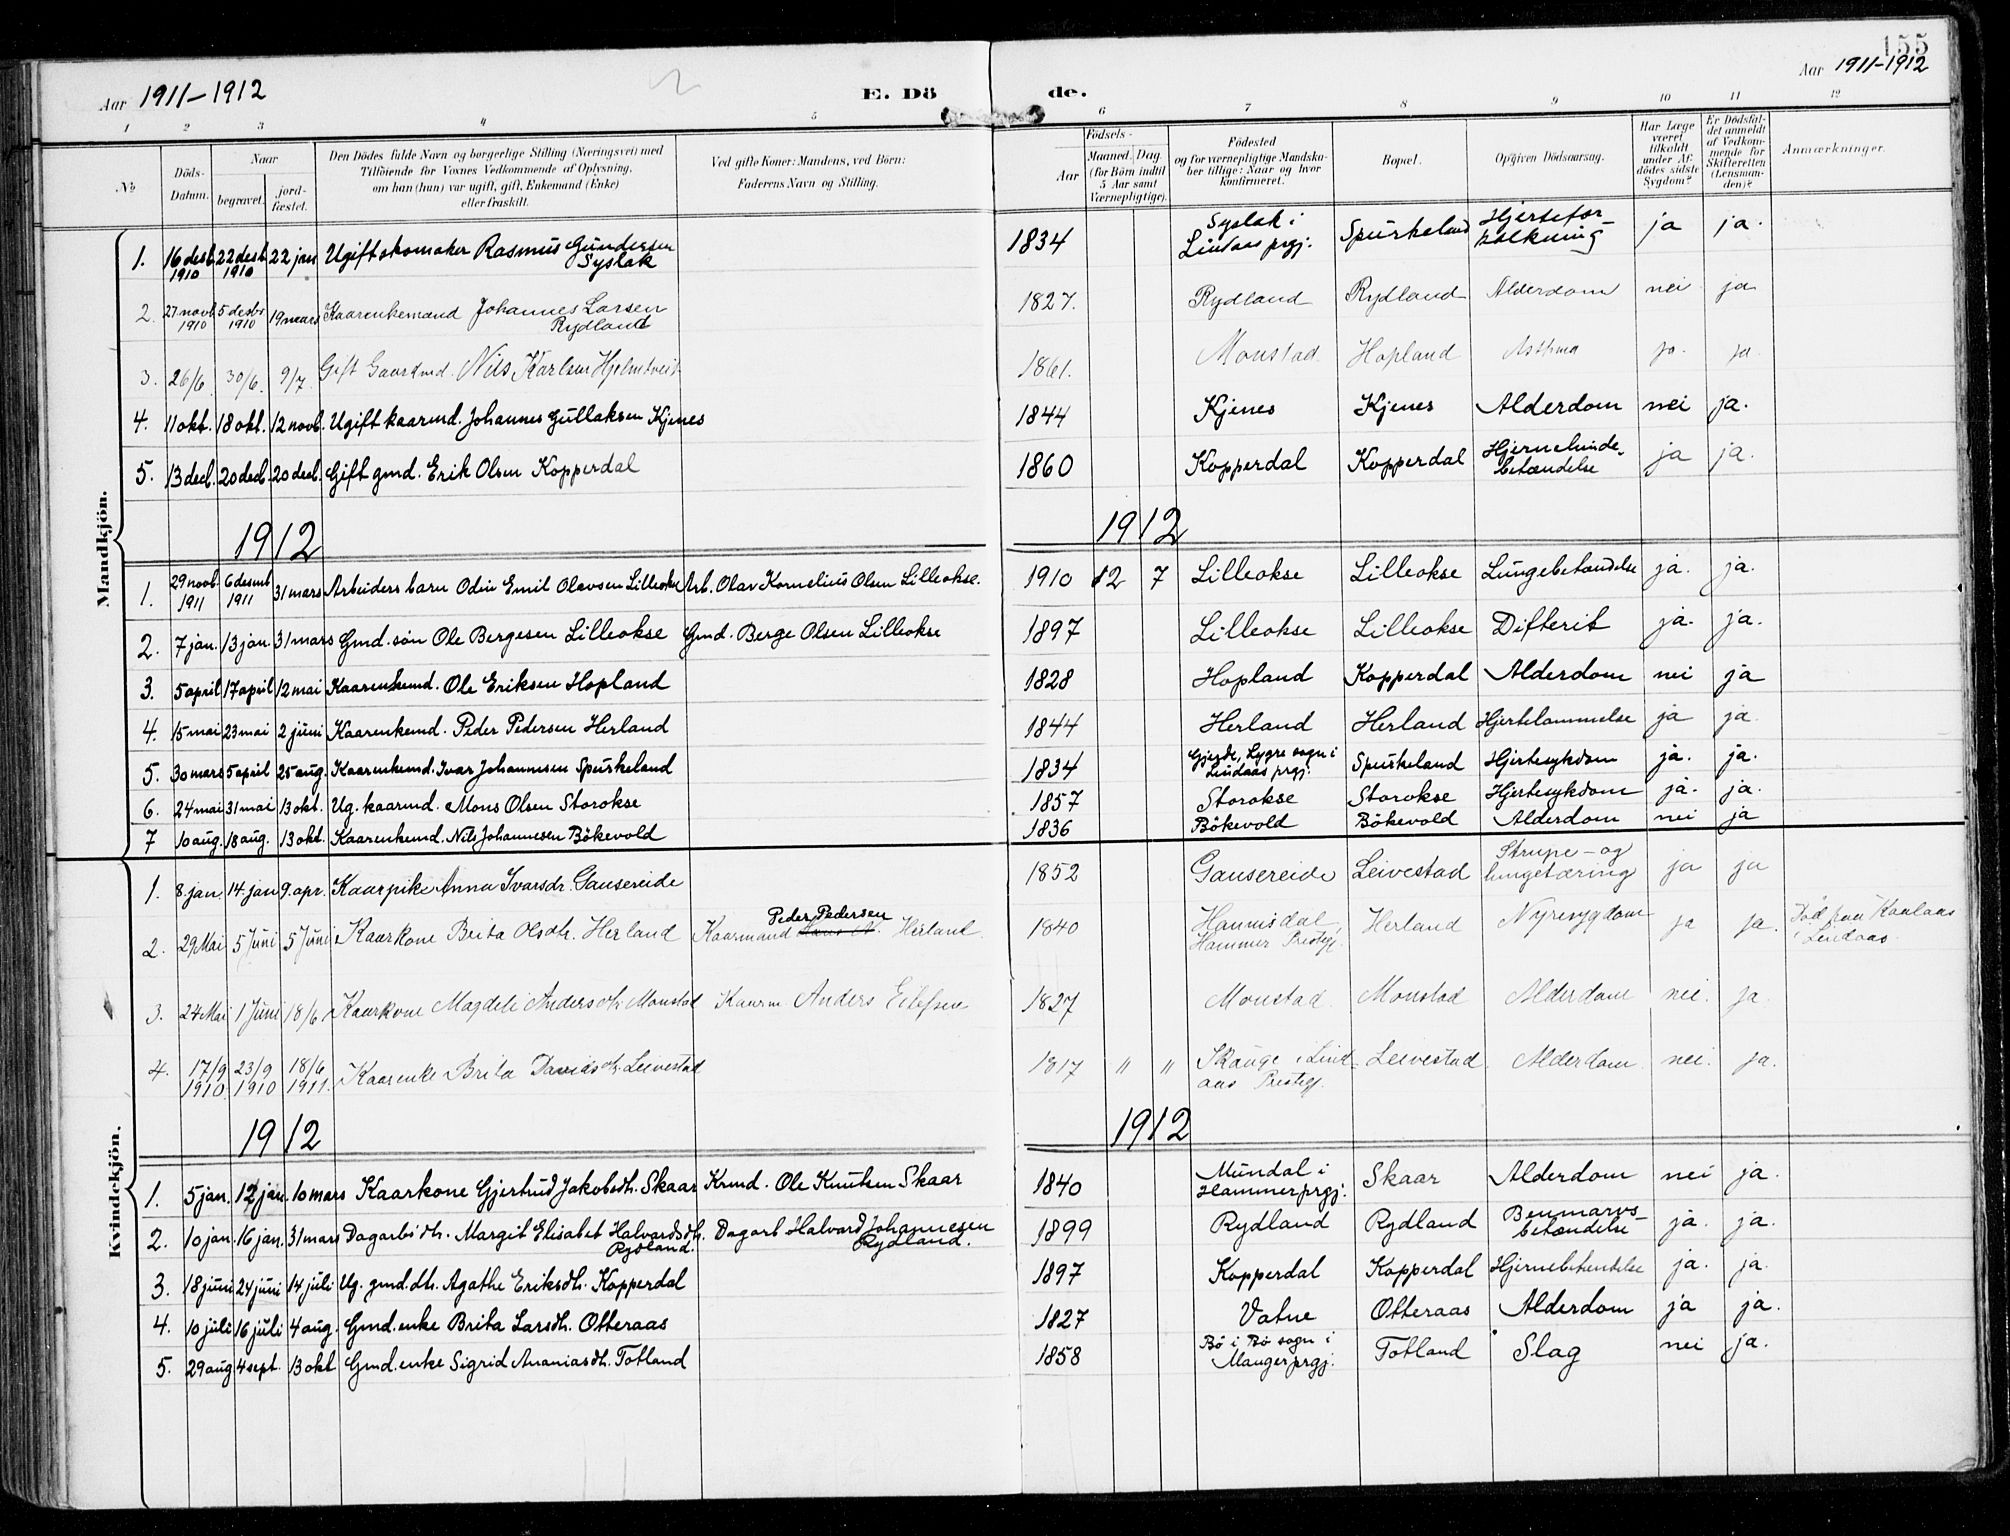 155
Aar 1911-1912 E. Dö de. Aar 1911-1912
1 2 3 4 5 6 7 8 9 10 11 12
No Döds-Datum. Naar begravet. jord-fæstet. Den Dödes fulde Navn og borgerlige Stilling (Næringsvei) med Tilföiende for Voxnes Vedkommende af Oplysning, om han (hun) var ugift, gift, Enkemand (Enke) eller fraskilt. Ved gifte Koner: Mandens, ved Börn: Faderens Navn og Stilling. Födsels- Aar Maaned. Dag. (for Börn indtil 5 Aar samt Værnepligtige). Födested og for værnepligtige Mandskaber tillige: Naar og hvor konfirmeret. Bopæl. Opgiven Dödsaarsag. Har Læge været tilkaldt under Afdödes sidste Sygdom? Er Dödsfaldet anmeldt af Vedkommende for Skifteretten (Lensmanden)? Anmærkninger.
Mandkjön.
1. 16 desb. 1910 22 desb. 1910 22 jan Ugift skomaker Rasmus Gundersen Syslak 1834 Syslak i Lindaas prgj. Spurkeland Hjerteforkalkning ja ja.
2. 27 novb. 1910 5 desbr 1910 19 mars Kaarenkemand Johannes Larsen Rydland 1827. Rydland Rydland Alderdom nei ja
3. 26/6 30/6. 9/7. Gift Gaardmd. Nils Karlsen Hjelmtveit 1861. Monstad Hopland Asthma ja. ja
4. 11 okt. 18 okt. 12 novb. Ugift kaarmd. Johannes Gullaksen Kjenes 1844 Kjenes Kjenes Alderdom nei ja.
5. 13 decb. 20 decb. 20 decb. Gift gmd. Erik Olsen Kopperdal 1860 Kopperdal Kopperdal Hjernehindebetændelse ja ja.
1912 1912
1. 29 novb. 1911 6 desmb 1911 31 mars Arbeiders barn Odin Emil Olavsen Lilleokse Arb. Olav Kornelius Olsen Lilleokse. 1910 12 7 Lilleokse Lilleokse Lungebetændelse ja. ja.
2. 7 jan. 13 jan. 31 mars Gmd. søn Ole Bergesen Lilleokse Gmd. Berge Olsen Lilleokse 1897 Lilleokse Lilleokse Difterit ja. ja.
3. 5 april 17 april 12 mai Kaarenkemd. Ole Eriksen Hopland 1828 Hopland Kopperdal Alderdom nei ja
4. 15 mai 23 mai 2 juni Kaarenkemd. Peder Pedersen Herland 1844 Herland Herland Hjertelammelse ja ja
5. 30 mars 5 april 25 aug. Kaarenkemd. Ivar Johannesen Spurkeland 1834 Gjerde, Lygre sogn i Lindaas prgj. Spurkeland Hjertesykdom ja. ja.
6. 24 mai 31 mai 13 okt. Ug. kaarmd. Mons Olsen Storokse 1857 Storokse Storokse Hjertesykdom ja. ja.
7 10 aug. 18 aug. 13 okt. Kaarenkemd. Nils Johannesen Bökevold 1836 Bökevold Bökevold Alderdom nei ja
Kvindekjön.
1. 8. jan. 14. jan 9. apr. Kaarpike Anna Ivarsdr. Gausereide 1852 Gausereide Leivestad Strupe- og lungetæring ja ja
2. 29 Mai 5 Juni 5 Juni Kaarkone Brita Olsdtr. Herland Kaarmand Peder Pedersen Herland 1840 Hannisdal, Hammer Prestgj. Herland Nyresygdom ja ja. Död paa Kaalaas i Lindaas.
3. 24 Mai 1 Juni 18/6 Kaarkone Magdeli Andersdtr Monstad Kaarm. Anders Eilefsen 1827 Monstad. Monstad Alderdom nei. ja.
4. 17/9 1910. 23/9 1910 18/6 1911. Kaarenke Brita Daviasdtr Leivestad 1817 " " Skauge i Lindaas Prestgj. Leivestad. Alderdom. nei. ja.
1912 1912
1. 5 jan. 12 jan. 10 mars Kaarkone Gjertrud Jakobsdtr. Skaar Krmd. Ole Knutsen Skaar 1840 Mundal i Hammer prgj. Skaar Alderdom nei ja.
2. 10 jan. 16 jan. 31 mars Dagarb. dtr. Margit Elisabet Halvardsdtr. Rydland. Dagarb Halvard Johannesen Rydland. 1899 Rydland Rydland Benmarvsbetændelse ja. ja.
3. 18 juni 24 juni 14 juli Ug. gmd. dtr. Agathe Eriksdtr. Kopperdal 1897 Kopperdal Kopperdal Hjernebetendelse ja. ja.
4. 10 juli 16 juli 4 aug. Gmd. enke Brita Larsdtr. Otteraas 1827 Vatne Otteraas Alderdom ja ja.
5. 29 aug 4 sept. 13 okt Gmd. enke Sigrid Ananiasdtr. Totland 1858 Bö i Bö sogn i Manger prgj. Totland Slag nei ja.